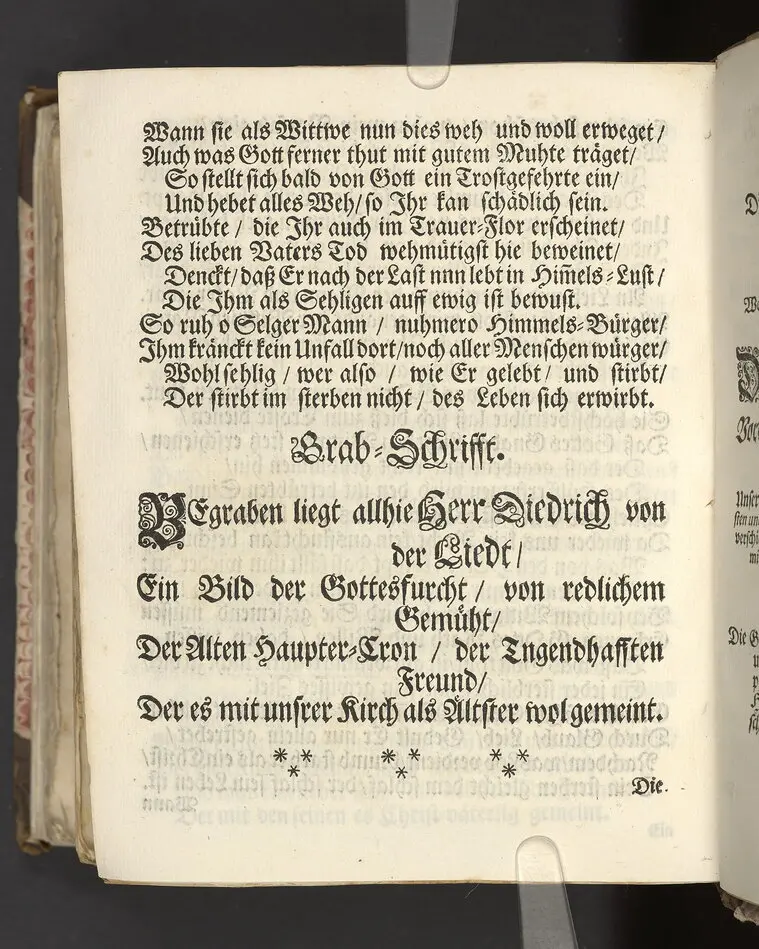 Wann sie als Wittwe nun dies weh und woll erweget/
Auch was Gott ferner thut mit gutem Muhte träget/
So stellt sich bald von Gott ein Trostgefehrte ein/
Und hebet alles Weh/ so Ihr kan schädlich sein.
Betrübte / die Ihr auch im Trauer-Flor erscheinet/
Des lieben Vaters Tod wehmütigst hie beweinet/
Denckt/ daß Er nach der Last nnn lebt in Him̅els-Lust/
Die Ihm als Sehligen auff ewig ist bewust.
So ruh o Selger Mann / nuhmero Himmels-Bürger/
Ihm kränckt kein Unfall dort/ noch aller Menschen würger/
Wohl sehlig / wer also / wie Er gelebt/ und stirbt/
Der stirbt im sterben nicht / des Leben sich erwirbt.
Grab-Schrifft.
BEgraben liegt allhie Herr Diedrich von
der Liedt/
Ein Bild der Gottesfurcht / von redlichem
Gemüht/
Der Alten Haupter-Cron / der Tngendhafften
Freund/
Der es mit unsrer Kirch als Ältster wol gemeint.
* * * * * *
* * *
Die